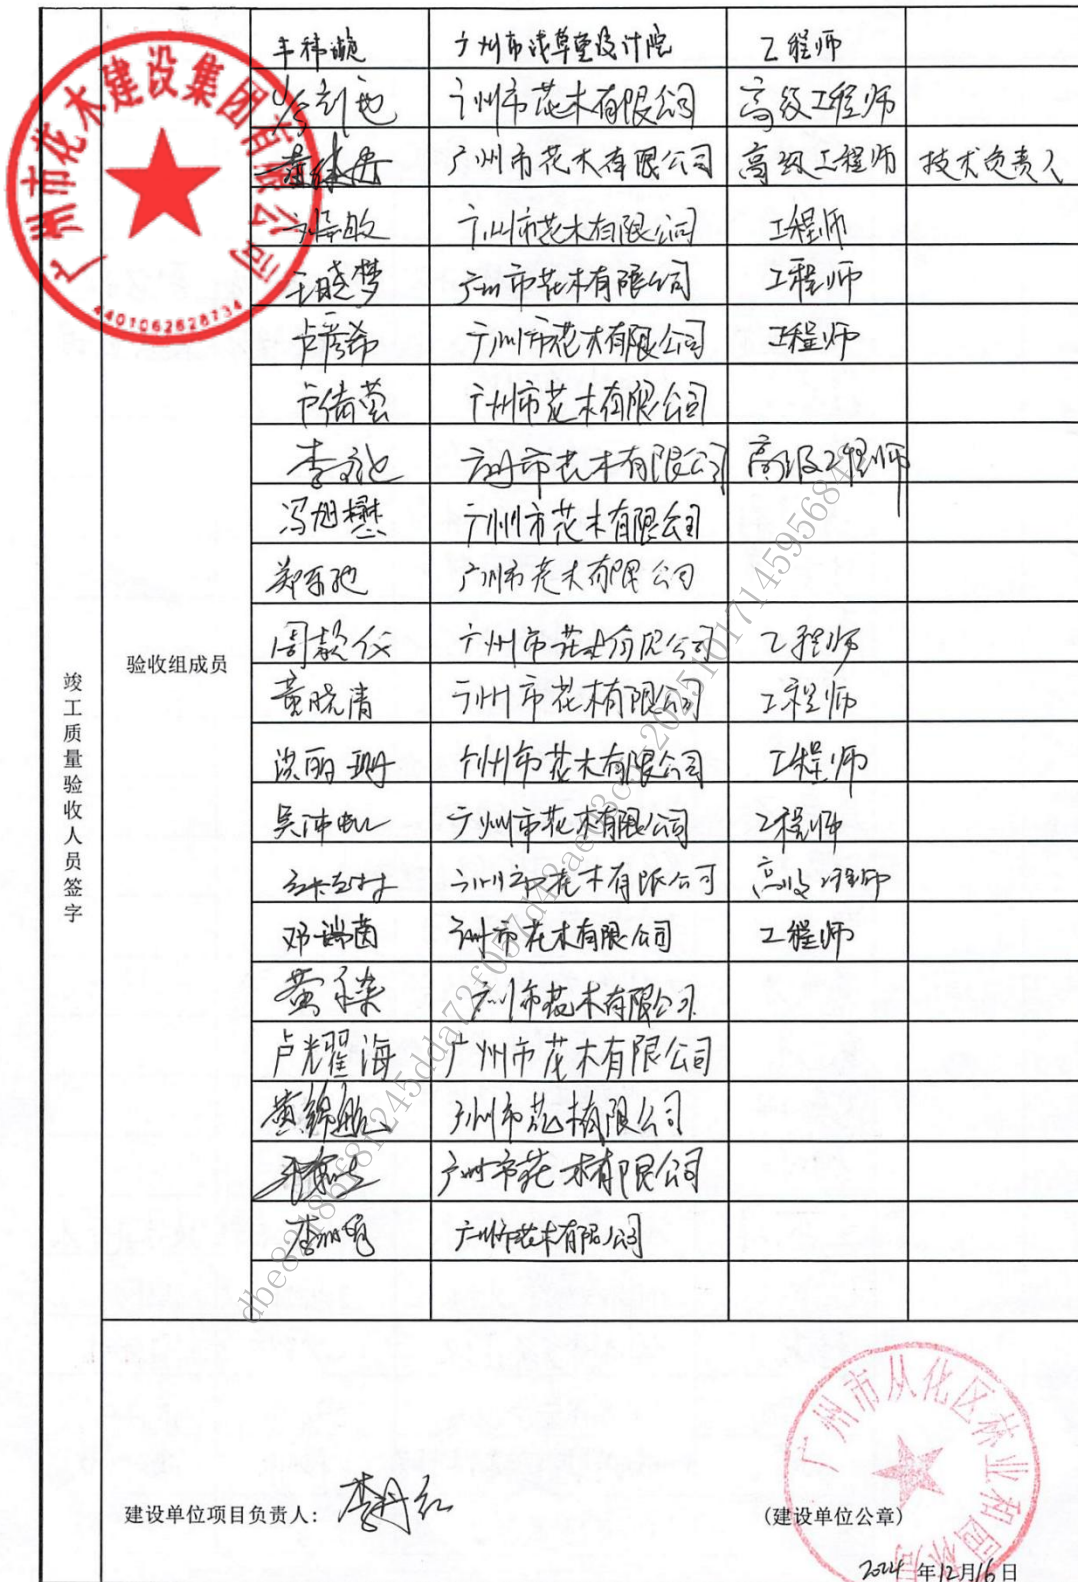 广州市花木建设集团有限公司
4401062628734
广州市浅草堂设计院 工程师
广州市花木有限公司 高级工程师
广州市花木有限公司 高级工程师 技术负责人
广州市花木有限公司 工程师
王晓梦 广州市花木有限公司 工程师
卢彦希 广州市花木有限公司 工程师
卢倩莹 广州市花木有限公司
广州市花木有限公司 高级工程师
冯旭懋 广州市花木有限公司
广州市花木有限公司
周款仪 广州市花木有限公司 工程师
黄晓清 广州市花木有限公司 工程师
洪丽珊 广州市花木有限公司 工程师
吴沛 广州市花木有限公司 工程师
广州市花木有限公司 高级工程师
邓端茵 广州市花木有限公司 工程师
黄 广州市花木有限公司
卢耀海 广州市花木有限公司
黄锦 广州市花木有限公司
广州市花木有限公司
李 广州市花木有限公司
验收组成员
竣工质量验收人员签字
建设单位项目负责人：李丹红
（建设单位公章）
广州市从化区林业和园林局
2024年12月16日